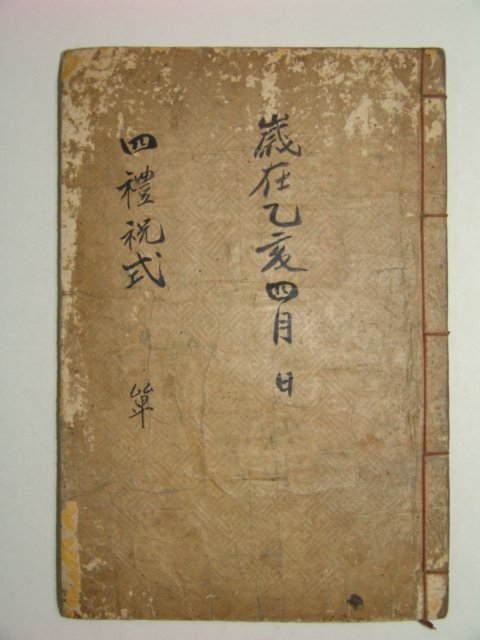 歲在乙亥四月 日
四禮祝式
單